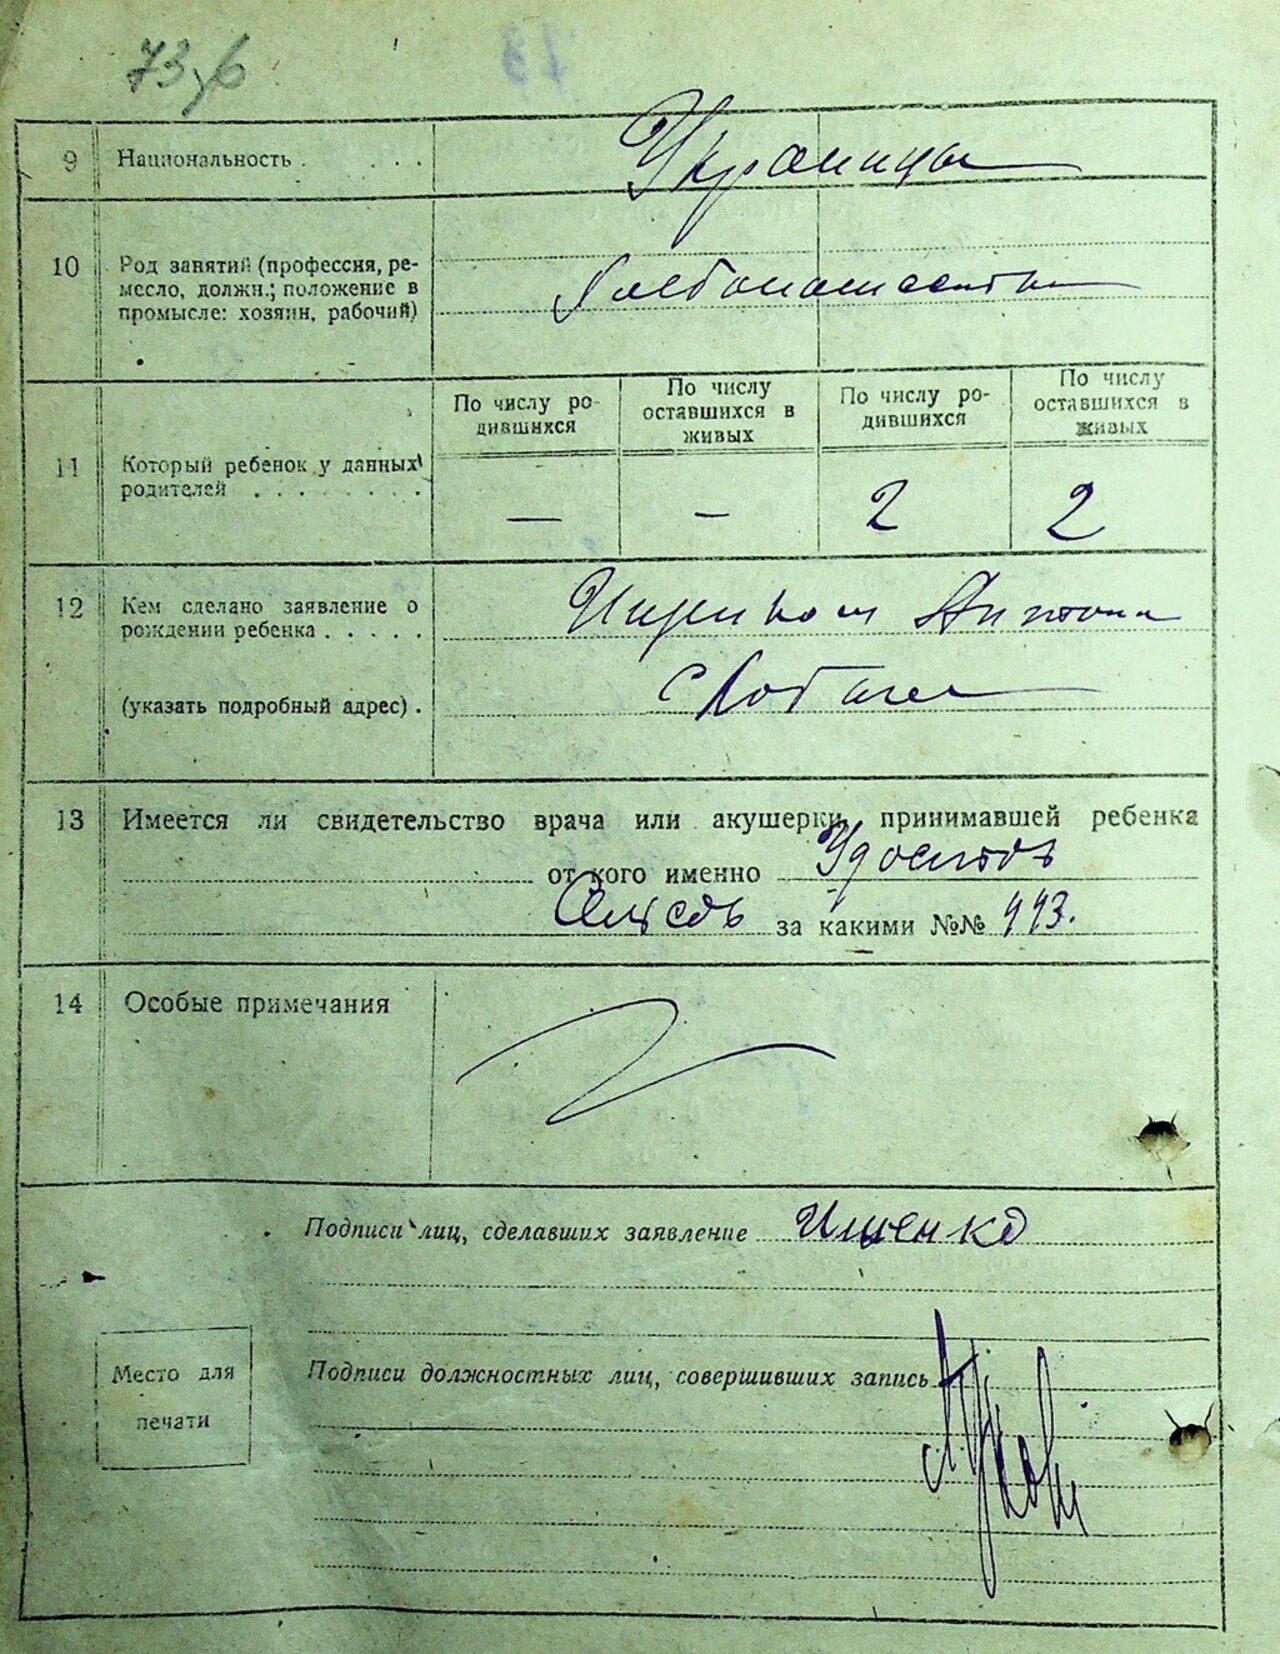 73об
9 Национальность . . . .
Украинцы
10 Род занятий (профессия, ре-
месло, должн.; положение в
промысле: хозяин, рабочий)
Хлебопашество
11 Который ребенок у данных
родителей . . . . . . . .
По числу ро-
дившихся
По числу
оставшихся в
живых
По числу ро-
дившихся
По числу
оставшихся в
живых
— — 2 2
12 Кем сделано заявление о
рождении ребенка . . . . .
Ищенком
(указать подробный адрес) .
13 Имеется ли свидетельство врача или акушерки, принимавшей ребенка
от кого именно
за какими №№
14 Особые примечания
Подписи лиц, сделавших заявление Ищенко
Место для
печати
Подписи должностных лиц, совершивших запись